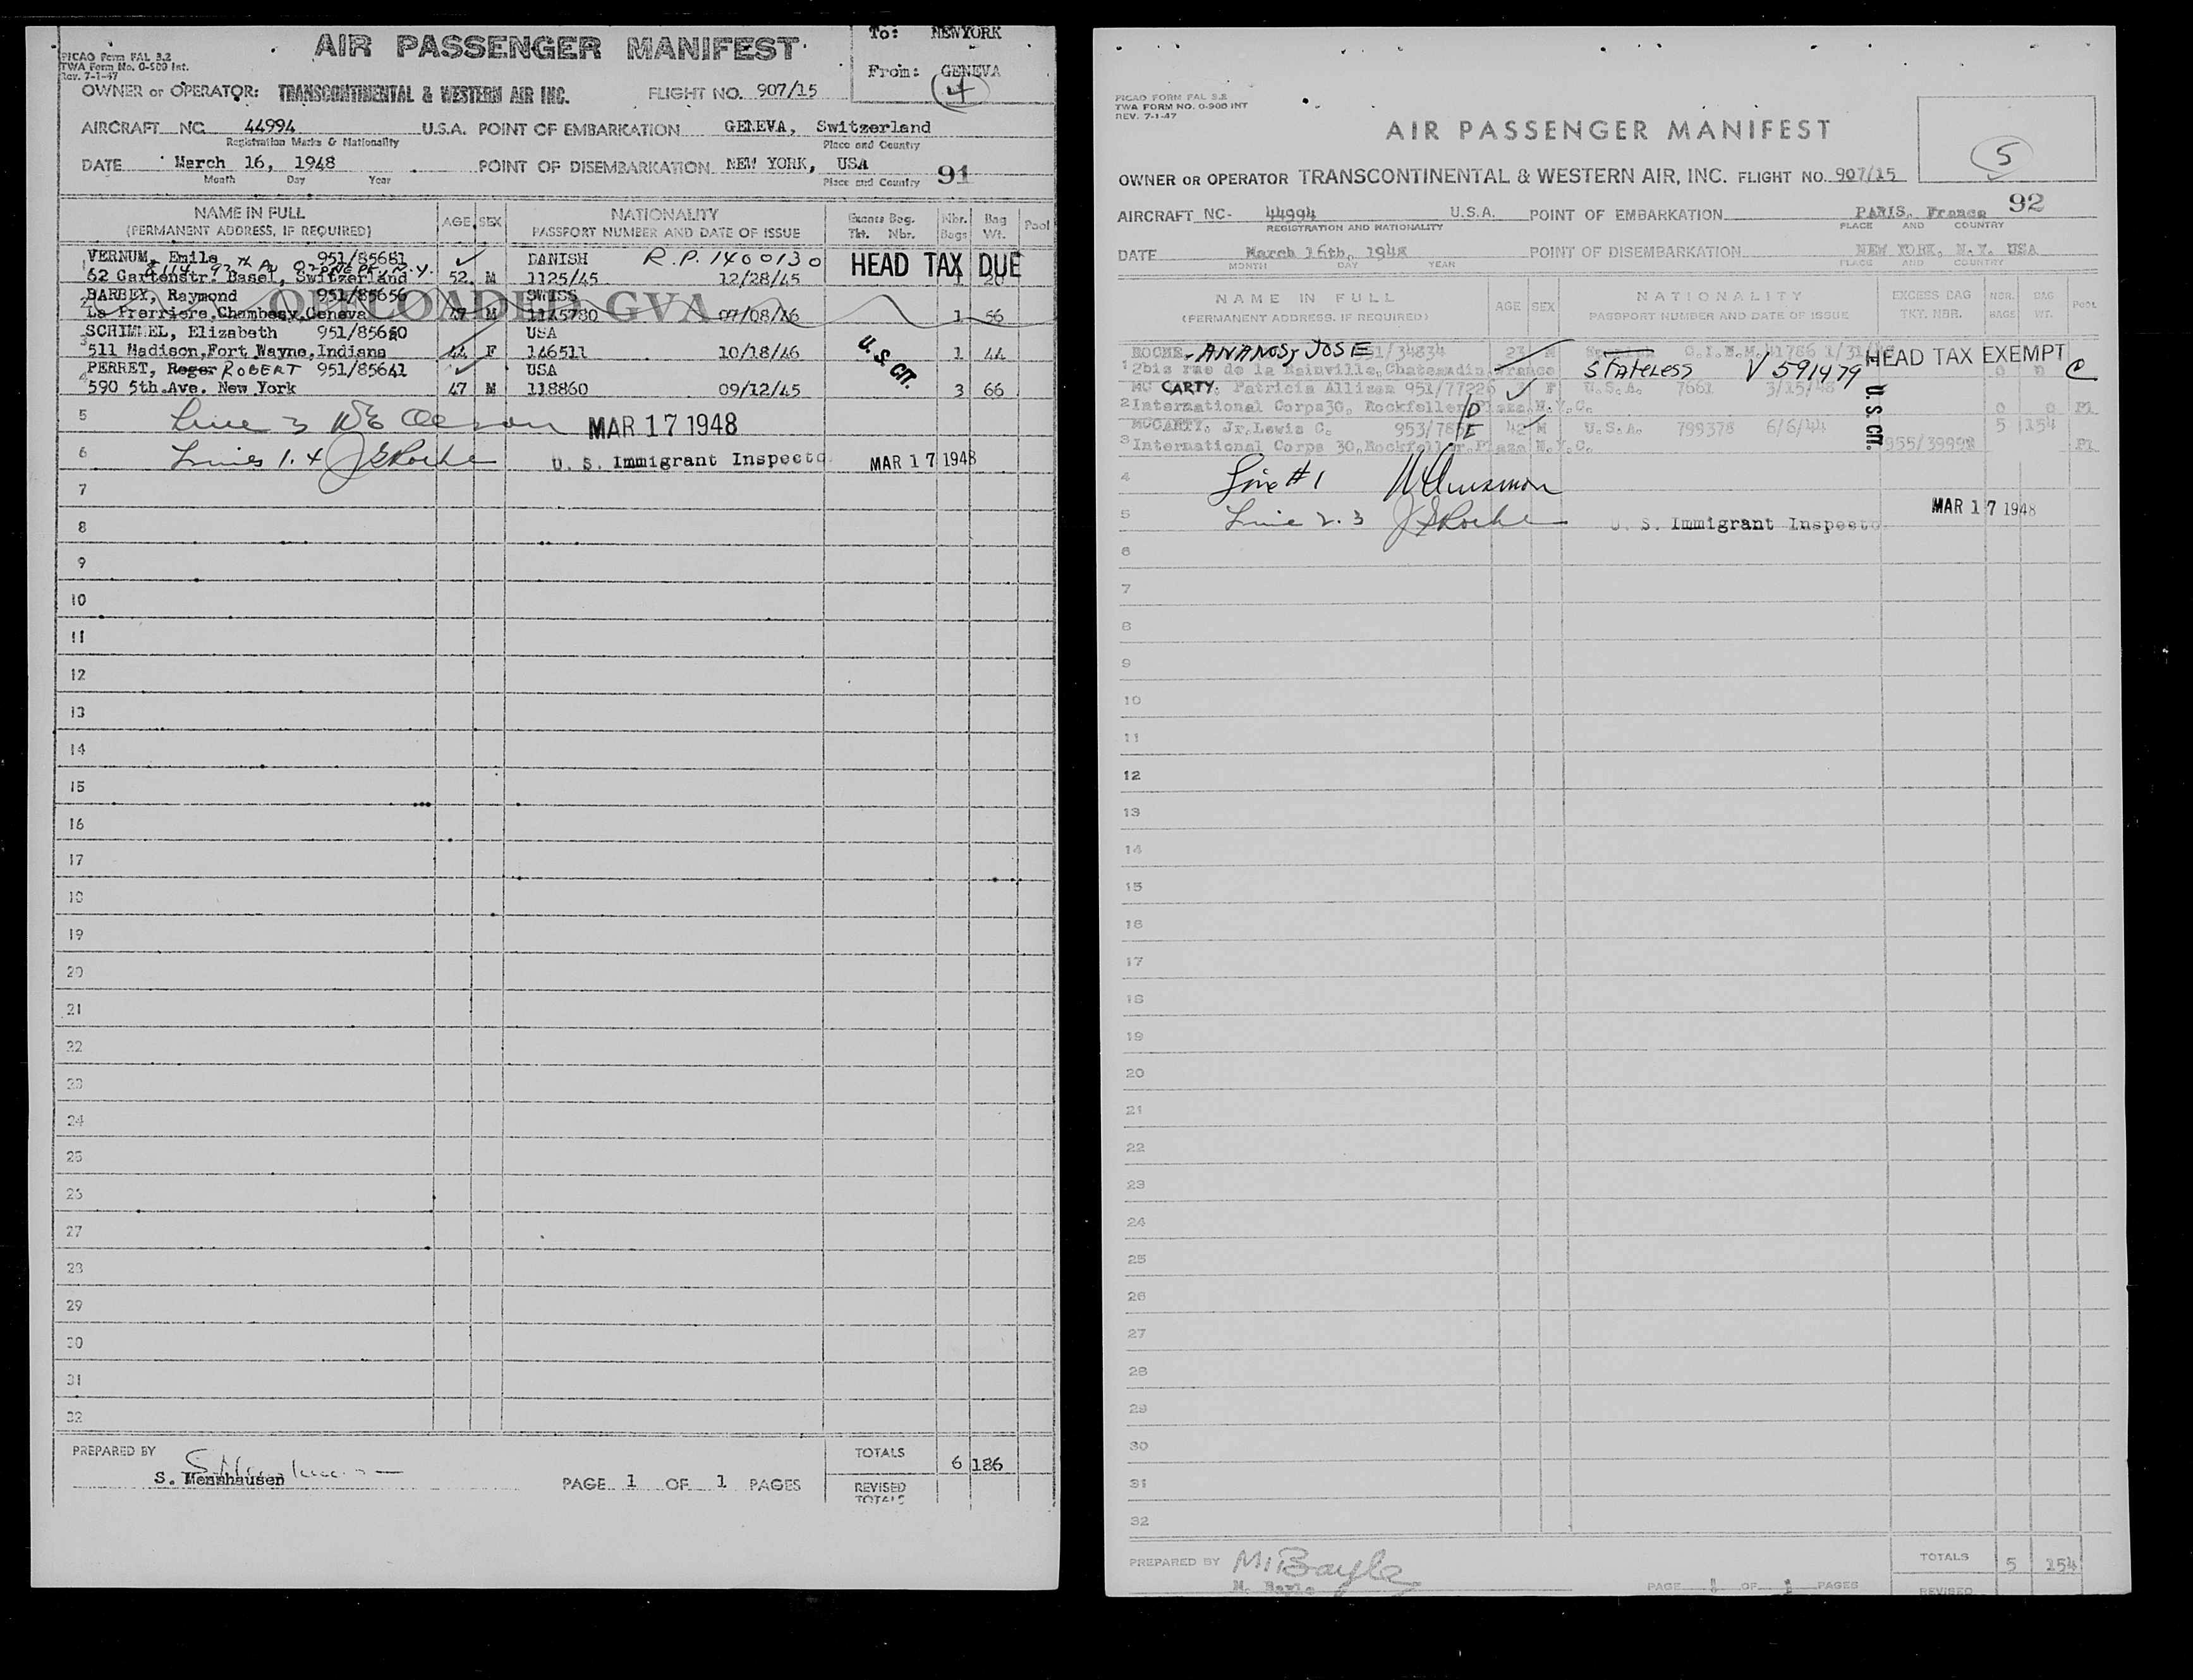 PICAO Form FAL 3.2
TWA Form No. 0-900 Int.
Rev. 7-1-47
AIR PASSENGER MANIFEST
To: NEWYORK
From: GENEVA
4
OWNER or OPERATOR: TRANSCONTINENTAL & WESTERN AIR INC. FLIGHT NO. 907/15
AIRCRAFT NC 44994 U.S.A. POINT OF EMBARKATION GENEVA, Switzerland
Registration Marks & Nationality Place and Country
DATE March 16, 1948 POINT OF DISEMBARKATION NEW YORK, USA
Month Day Year Place and Country 91
NAME IN FULL AGE SEX NATIONALITY Excess Bag. Nbr. Bag Pool
(PERMANENT ADDRESS, IF REQUIRED) PASSPORT NUMBER AND DATE OF ISSUE Tkt. Nbr. Bags Wt.
VERNUM, Emile 951/85681 DANISH R.P. 1400130 HEAD TAX DUE
1 62 Gartenstr. Basel, Switzerland 52 M 1125/45 12/28/45 1 20
BARBEY, Raymond 951/85656 SWISS
OFFLOADED GVA
2 La Prerriere, Chambesy, Geneva 47 M 1145780 07/08/46 1 56
SCHIMMEL, Elizabeth 951/85680 USA
3 511 Madison, Fort Wayne, Indiana 44 F 146511 10/18/46 U.S. CIT. 1 44
PERRET, Roger ROBERT 951/85641 USA
4 590 5th.Ave. New York 47 M 118860 09/12/45 3 66
5 Line 3 MAR 17 1948
6 Lines 1.4 J E Roche U. S. Immigrant Inspecto MAR 17 1948
7
8
9
10
11
12
13
14
15
16
17
18
19
20
21
22
23
24
25
26
27
28
29
30
31
32
PREPARED BY TOTALS 6 186
S. Mennhausen PAGE 1 OF 1 PAGES REVISED
TOTALS
PICAO FORM FAL 3.2
TWA FORM NO. 0-900 INT
REV. 7-1-47
AIR PASSENGER MANIFEST
5
OWNER OR OPERATOR TRANSCONTINENTAL & WESTERN AIR, INC. FLIGHT NO. 907/15
AIRCRAFT NC- 44994 U.S.A. POINT OF EMBARKATION PARIS, France 92
REGISTRATION AND NATIONALITY PLACE AND COUNTRY
DATE March 16th, 1948 POINT OF DISEMBARKATION NEW YORK, N.Y. USA
MONTH DAY YEAR PLACE AND COUNTRY
NAME IN FULL AGE SEX NATIONALITY EXCESS BAG NBR. BAG POOL
(PERMANENT ADDRESS, IF REQUIRED) PASSPORT NUMBER AND DATE OF ISSUE TKT. NBR. BAGS WT.
ROCHE - ANANOS, JOSE 951/34834 23 M HEAD TAX EXEMPT
1 2bis rue de la Rainville, Chateaudin, France STATELESS V 591479 0 0 C
MC CARTY, Patricia Allison 951/77226 F U.S.A. 7661 3/15/48 U.S. CIT.
2 International Corps 30, Rockfeller Plaza N.Y.C. 0 0 P1
MCCARTY, Jr. Lewis C. 42 M U.S.A. 799378 6/6/44 5 154
3 International Corps 30, Rockfeller Plaza N.Y.C. 955/39998 P1
4 Line #1
5 Line 2.3 J E Roche U. S. Immigrant Inspecto MAR 17 1948
6
7
8
9
10
11
12
13
14
15
16
17
18
19
20
21
22
23
24
25
26
27
28
29
30
31
32
PREPARED BY M. Bayle TOTALS 5 154
M. Bayle PAGE 1 OF 1 PAGES REVISED